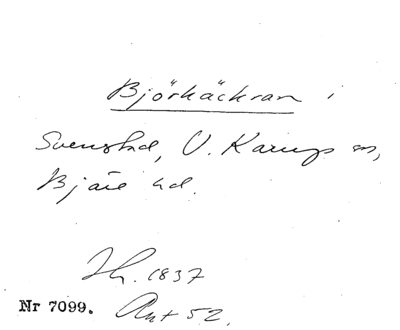 Björkäckran i
Svenstad, V. Karups sn,
Bjäre hd.
Jh. 1837
Nr 7099. Ant 52.